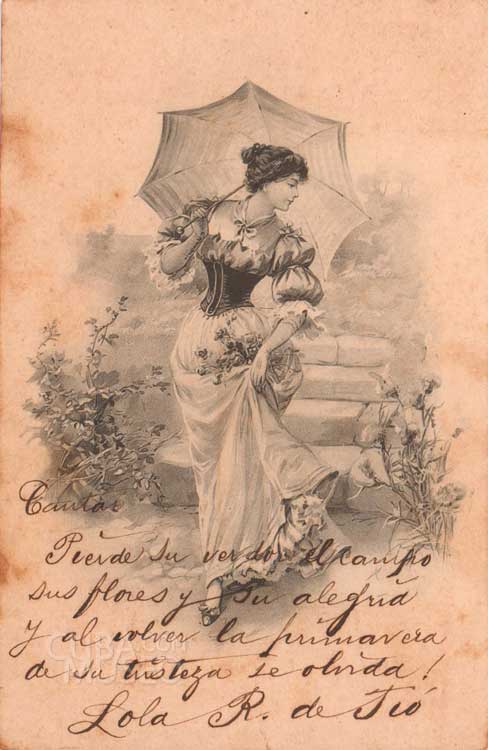 Cantar
Pierde su verdor el campo
sus flores y su alegría
Y al volver la primavera
de su tristeza se olvida!
Lola R. de Tió